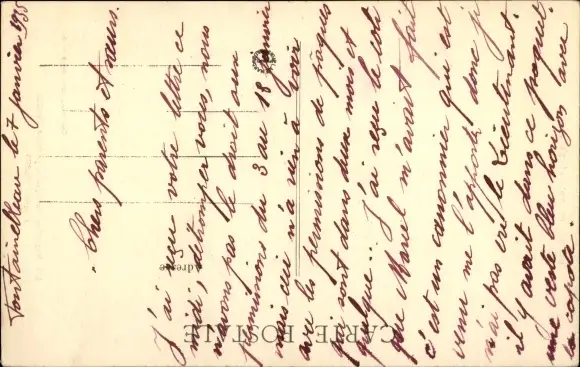 Fontainebleau le 7 janvier 1935
Chers parents et sœurs.
J'ai reçu votre lettre ce
midi, détrompez vous, nous
n'avons pas le droit aux
permissions du 3 au 18 janvier
mais ceci n'a rien à voir
avec les permissions de pâques
qui sont dans deux mois et
quelque. J'ai reçu le colis
que Marcel m'avait fait
c'est un canonnier qui est
venu me l'apporté, donc je
n'ai pas vu le lieutenant.
il y avait dans ce paquet
une veste bleu horizon avec
la capote.
CARTE POSTALE
Adresse